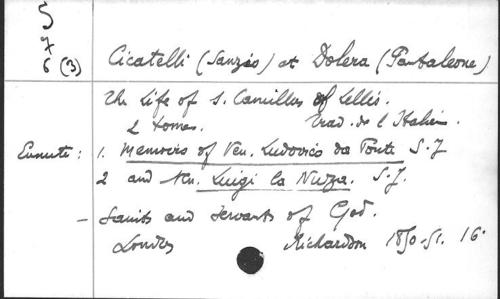 5
7
6 (3)
Cicatelli (Sanzio) et Dolera (Pantaleone)
The Life of S. Camillus of Lellis.
2 tomes. Trad. de l'Italien.
Ensuite : 1. Memoirs of Ven. Ludovico da Ponte S.J
2 and Ven. Luigi la Nuza. S.J.
- Saints and Servants of God.
Londres Richardson 1850-51. 16°